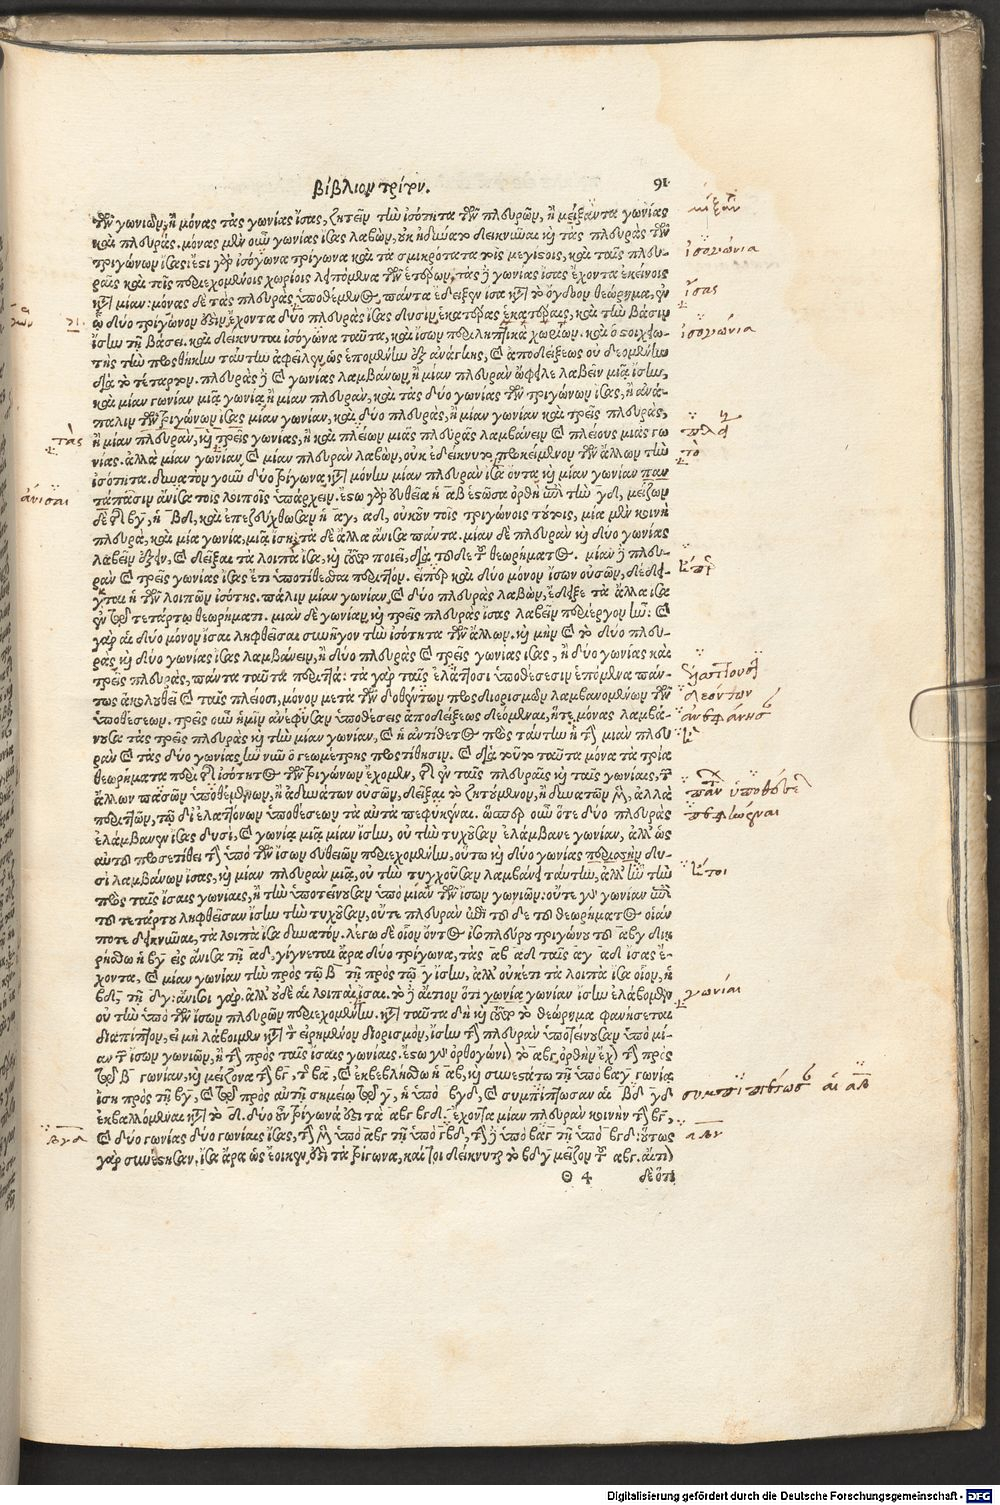 βιβλίον τρίτον. 91
τῶν γωνιῶν, ἢ μόνας τὰς γωνίας ἴσας, ζητεῖν τὴν ἰσότητα τῶν πλευρῶν, ἢ μείξαντα γωνίας
καὶ πλευράς. μόνας μὲν οὖν γωνίας ἴσας λαβὼν, οὐκ ἠδύνατο δεικνύναι καὶ τὰς πλευρὰς τῶν
τριγώνων ἴσας: ἔστι γὰρ ἰσόγωνα τρίγωνα καὶ τὰ σμικρότατα τοῖς μεγίστοις, καὶ ταῖς πλευ-
ραῖς καὶ τοῖς περιεχομένοις χωρίοις λειπόμενα τῶν ἑτέρων, τὰς δὲ γωνίας ἴσας ἔχοντα ἐκείνοις
κατὰ μίαν: μόνας δὲ τὰς πλευρὰς ὑποθέμενος, πάντα ἔδειξεν ἴσα κατὰ τὸ ὄγδοον θεώρημα, ἐν
ᾧ δύο τρίγωνον ἔχοντα δύο πλευρὰς ἴσας δυσὶν ἑκατέρας ἑκατέραις, καὶ τὴν βάσιν
ἴσην τῇ βάσει. καὶ δείκνυται ἰσόγωνα ταῦτα, καὶ ἴσων περιληπτικὰ χωρίων. καὶ ὁ στοιχειω-
τὴς τὴν προσθήκην ταύτην ἀφεῖλεν, ὡς ἑπομένην ἐξ ἀνάγκης, καὶ ἀποδείξεως οὐ δεομένην
διὰ τὸ τέταρτον. πλευρὰς δὲ καὶ γωνίας λαμβάνων, ἢ μίαν πλευρὰν ὤφειλε λαβεῖν μιᾷ ἴσην,
καὶ μίαν γωνίαν μιᾷ γωνίᾳ, ἢ μίαν πλευρὰν, καὶ τὰς δύο γωνίας τῶν τριγώνων ἴσας, ἢ ἀνά-
παλιν τῶν τριγώνων ἴσας μίαν γωνίαν, καὶ δύο πλευρὰς, ἢ μίαν γωνίαν καὶ τρεῖς πλευρὰς,
ἢ μίαν πλευρὰν, καὶ τρεῖς γωνίας, ἢ καὶ πλείων μιᾶς πλευρᾶς λαμβάνειν καὶ πλείους μιᾶς γω
νίας. ἀλλὰ μίαν γωνίαν καὶ μίαν πλευρὰν λαβὼν, οὐκ ἐδείκνυτο προκείμενον τῶν ἄλλων τὴν
ἰσότητα. δυνατὸν γοῦν δύο τρίγωνα κατὰ μόνην μίαν πλευρὰν ἴσα ὄντα καὶ μίαν γωνίαν παν
τάπασιν ἄνισα τοῖς λοιποῖς ὑπάρχειν. ἔστω γὰρ εὐθεῖα ἡ αβ ἑστῶσα ὀρθὴ ἐπὶ τὴν γδ, μείζων
δὲ τῆς βγ, ἡ βδ, καὶ ἐπεζεύχθωσαν ἡ αγ, αδ, οὐκοῦν τοῖς τριγώνοις τούτοις, μία μὲν κοινὴ
πλευρὰ, καὶ μία γωνία, μιᾷ ἴση: τὰ δὲ ἄλλα ἄνισα πάντα. μίαν δὲ πλευρὰν καὶ δύο γωνίας
λαβεῖν ἐξῆν, καὶ δεῖξαι τὰ λοιπὰ ἴσα, καὶ τοῦτο ποιεῖ, διὰ τοῦδε τοῦ θεωρήματος. μίαν δὲ πλευ-
ρὰν καὶ τρεῖς γωνίας ἴσας ἔτι ὑποτίθεσθαι περιττόν. εἴπερ καὶ δύο μόνον ἴσων οὐσῶν, δέδει-
κται ἡ τῶν λοιπῶν ἰσότης. πάλιν μίαν γωνίαν, καὶ δύο πλευρὰς λαβὼν, ἔδειξε τὰ ἄλλα ἴσα
ἐν τῷ τετάρτῳ θεωρήματι. μίαν δὲ γωνίαν καὶ τρεῖς πλευρὰς ἴσας λαβεῖν περίεργον ἦν. καὶ
γὰρ αἱ δύο μόνον ἴσαι ληφθεῖσαι συνῆγον τὴν ἰσότητα τῶν ἄλλων. καὶ μὴν καὶ τὸ δύο πλευ-
ρὰς καὶ δύο γωνίας ἴσας λαμβάνειν, ἢ δύο πλευρὰς καὶ τρεῖς γωνίας ἴσας, ἢ δύο γωνίας καὶ
τρεῖς πλευρὰς, πάντα ταῦτα περιττά: τὰ γὰρ ταῖς ἐλάττοσι ὑποθέσεσιν ἑπόμενα πάν-
τως ἀκολουθεῖ καὶ ταῖς πλείοσι, μόνον μετὰ τῶν δοθέντων προσδιορισμῶν λαμβανομένων τῶν
ὑποθέσεων. τρεῖς οὖν ἡμῖν ἀνέφυσαν ὑποθέσεις ἀποδείξεως δεόμεναι, ἥτε μόνας λαμβά-
νουσα τὰς τρεῖς πλευρὰς καὶ τὴν μίαν γωνίαν, καὶ ἡ ἀντίθετος πρὸς ταύτην ἡ τὴν μίαν πλευ
ρὰν καὶ τὰς δύο γωνίας ἣν νῦν ὁ γεωμέτρης προστίθησιν. καὶ διὰ τοῦτο ταῦτα μόνα τὰ τρία
θεωρήματα περὶ τῆς ἰσότητος τῶν τριγώνων ἔχομεν, τῆς ἐν ταῖς πλευραῖς καὶ ταῖς γωνίαις, τῶν
ἄλλων πασῶν ὑποθέσεων, ἢ ἀδυνάτων οὐσῶν, δεῖξαι τὸ ζητούμενον, ἢ δυνατῶν μὲν, ἀλλὰ
περιττῶν, τῷ δι' ἐλαττόνων ὑποθέσεων τὰ αὐτὰ πεφυκέναι. ὥσπερ οὖν ὅτε δύο πλευρὰς
ἐλάμβανεν ἴσας δυσὶ, καὶ γωνίᾳ μιᾷ μίαν ἴσην, οὐ τὴν τυχοῦσαν ἐλάμβανε γωνίαν, ἀλλ' ὡς
αὐτὸς προσετίθει τὴν ὑπὸ τῶν ἴσων εὐθειῶν περιεχομένην, οὕτω καὶ δύο γωνίας δυ-
σὶ λαμβάνων ἴσας, καὶ μίαν πλευρὰν μιᾷ, οὐ τὴν τυγχοῦσαν λαμβάνει ταύτην, ἀλλ' ἣν τὴν
πρὸς ταῖς ἴσαις γωνίαις, ἢ τὴν ὑποτείνουσαν ὑπὸ μίαν τῶν ἴσων γωνιῶν: οὔτε γὰρ γωνίαν ἐπὶ
τοῦ τετάρτου ληφθεῖσαν ἴσην τὴν τυχοῦσαν, οὔτε πλευρὰν ἐπὶ τοῦ δὲ τοῦ θεωρήματος οἵαν
ποτε δεικνύναι, τὰ λοιπὰ ἴσα δυνατόν. λέγω δὲ οἷον ὄντος ἰσοπλεύρου τριγώνου τοῦ αβγ διῃ
ρήσθω ἡ βγ εἰς ἄνισα τῇ αδ, γίγνεται ἄρα δύο τρίγωνα, τὰς αβ αδ ταῖς αγ αδ ἴσας ἔ-
χοντα, καὶ μίαν γωνίαν τὴν πρὸς τῷ β τῇ πρὸς τῷ γ ἴσην, ἀλλ' οὐκέτι τὰ λοιπὰ ἴσα οἷον, ἡ
βδ τῇ δγ: ἄνισοι γάρ. ἀλλ' οὐδὲ αἱ λοιπαὶ ἴσαι. τὸ δὲ αἴτιον ὅτι γωνία γωνίαν ἴσην ἐλάβομεν
οὐ τὴν ὑπὸ τῶν ἴσων πλευρῶν περιεχομένην. κατὰ ταῦτα δὴ καὶ τοῦτο τὸ θεώρημα φανήσεται
διαπίπτον, εἰ μὴ λάβοιμεν κατὰ τὸν εἰρημένον διορισμὸν, ἴσην τὴν πλευρὰν ὑποτείνουσαν ὑπὸ μί-
αν τῶν ἴσων γωνιῶν, ἢ τὴν πρὸς ταῖς ἴσαις γωνίαις. ἔστω γὰρ ὀρθογώνιον τὸ αβγ ὀρθὴν ἔχον τὴν πρὸς
τῷ β γωνίαν, καὶ μείζονα τὴν βγ, τῆς βα, καὶ ἐκβεβλήσθω ἡ αβ, καὶ συνεστάτω τῇ ὑπὸ βαγ γωνίᾳ
ἴση πρὸς τῇ βγ, καὶ τῷ πρὸς αὐτῇ σημείῳ τῷ γ, ἡ ὑπὸ βγδ, καὶ συμπίπτωσαν αἱ βδ γδ
ἐκβαλλόμεναι κατὰ τὸ δ. δύο οὖν τρίγωνά ἐστι τὰ αβγ βγδ. ἔχοντα μίαν πλευρὰν κοινὴν τὴν βγ,
καὶ δύο γωνίας δύο γωνίαις ἴσας, τὴν μὲν ὑπὸ αβγ τῇ ὑπὸ γβδ, τὴν δὲ ὑπὸ βαγ τῇ ὑπὸ βγδ: οὕτως
γὰρ συνέστησαν, ἴσα ἄρα ὡς ἔοικεν, ἐστι τὰ τρίγωνα, καίτοι δείκνυται τὸ βδγ μεῖζον τοῦ αβγ. αἴτιον
Θ 4 δὲ ὅτι
ἰσογώνια
ἴσας
ἰσογώνια
τὰς
τὸ
ἄνισαι
γωνίαι
βγδ
αβγ
Digitalisierung gefördert durch die Deutsche Forschungsgemeinschaft - DFG